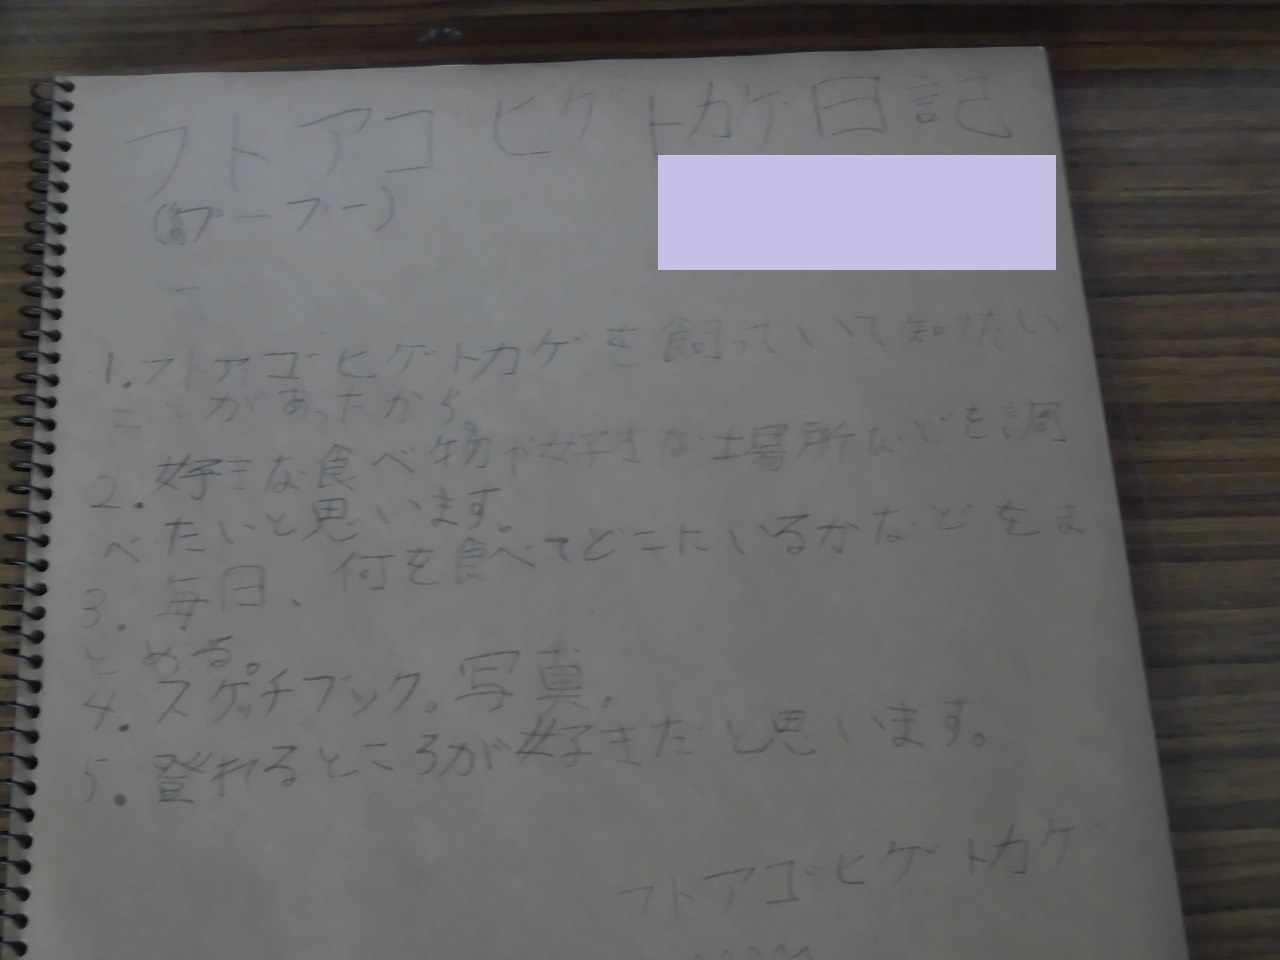 フトアゴヒゲトカゲ日記
(プープー)
1.フトアゴヒゲトカゲを飼っていて知りたい
ことがあったから。
2.好きな食べ物や好きな場所などを調
べたいと思います。
3.毎日、何を食べてどこにいるかなどをま
とめる。
4.スケッチブック。写真。
5.登れるところが好きだと思います。
フトアゴヒゲトカゲ